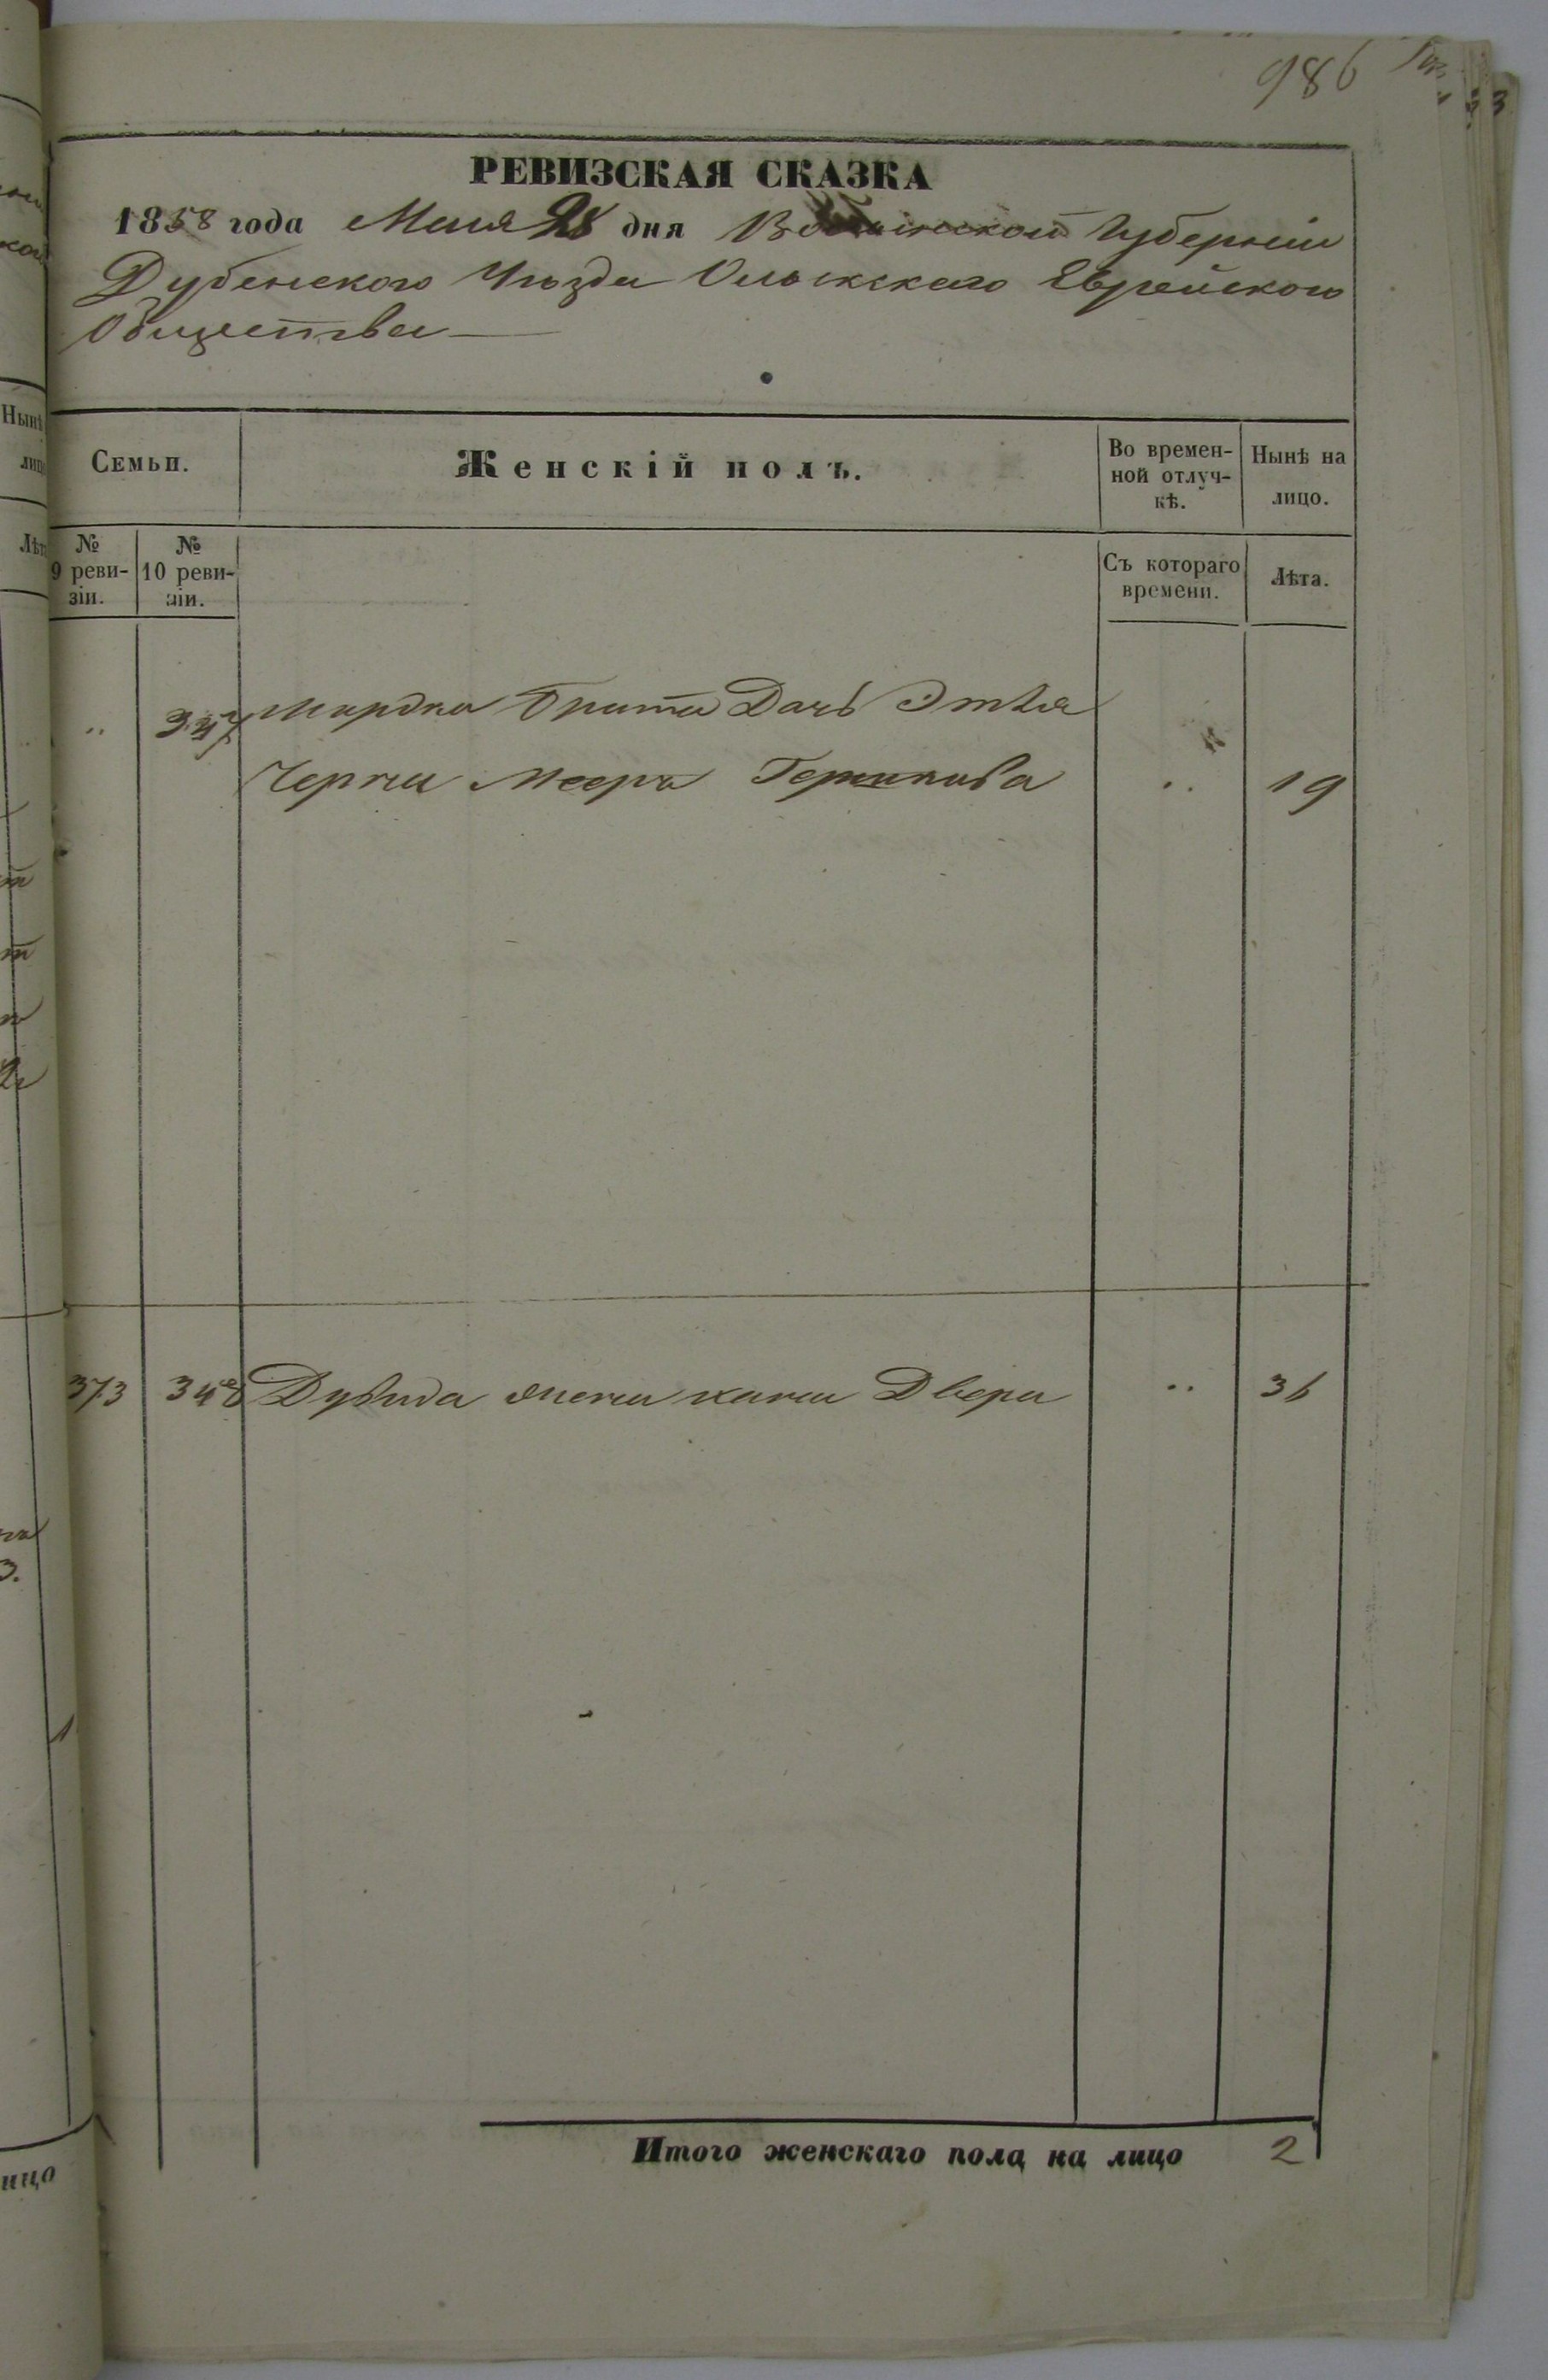 986
РЕВИЗСКАЯ СКАЗКА
1858 года Мая 28 дня Волынской Губерніи
Дубенского Уѣзда Олыкскаго Еврейского
Общества
Семьи.
Женскій полъ.
Во времен-
ной отлуч-
кѣ.
Нынѣ на
лицо.
№
9 реви-
зіи.
№
10 реви-
зіи.
Съ котораго
времени.
Лѣта.
" 347 Мордка Дочь Этля
Черна Меера " 19
373 348 Дувида жена хана Двера " 36
Итого женскаго пола на лицо 2